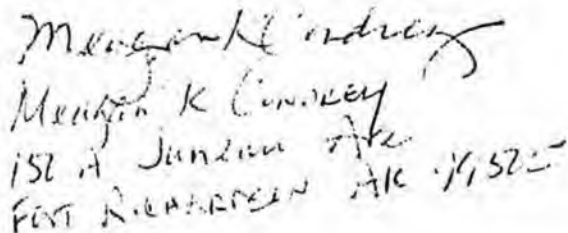 Meagan K Condrey
Meagan K Condrey
152 A Juneau Ave
Fort Richardson AK